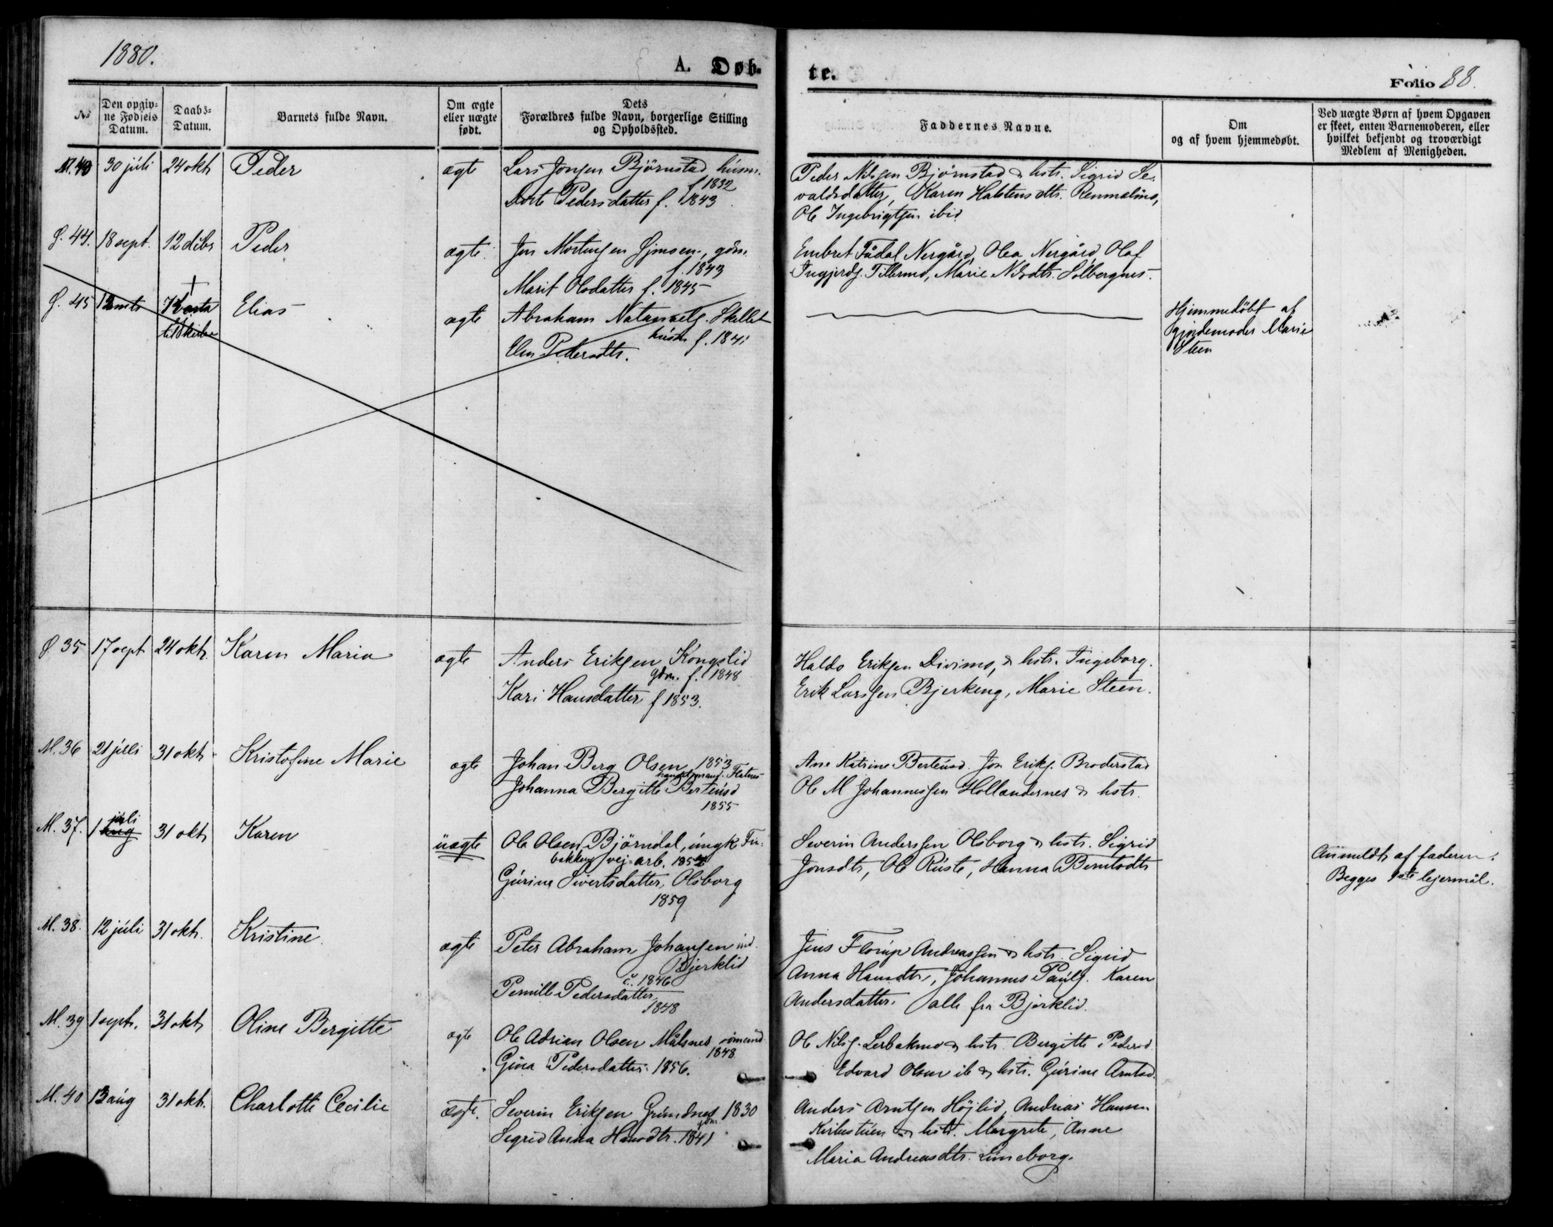 1880.
A. Døb-
te.
Folio 88.
No
Den opgiv-
ne Fødsels
Datum.
Daabs-
Datum.
Barnets fulde Navn.
Om ægte
eller uægte
født.
Dets
Forældres fulde Navn, borgerlige Stilling
og Opholdssted.
Faddernes Navne.
Om
og af hvem hjemmedøbt.
Ved uægte Børn af hvem Opgaven
er skeet, enten Barnemoderen, eller
hvilket bekjendt og troværdigt
Medlem af Menigheden.
M. 40 30 juli 24 okt Peder ægt Lars Jonsen Bjørnstad husm.
f 1832
Dorte Pedersdatter f. 1843
Peder Nilsen Bjørnstad & hstr. Sigrid Se-
valdsdatter, Karen Halstensdtr. Rennælmo,
Ole Ingebrigtsen ibid
Ø. 44. 18 sept. 12 dcbr Peder ægte Jon Mortensen Øjmoen, gdm.
f. 1843
Marit Olsdatter f. 1845
Embret Fådal Nergård, Olea Nergård Olaf
Ingjerdg. Tillermo, Marie Nilsdtr. Solbergnes.
Ø. 45 Elias ægte Abraham Natanaels. Skallet
husm f. 184
Elen Pedersdtr.
Hjemmedøbt af
gjordemoder Marie
Steen
Ø 35 17 sept 24 okt. Karen Maria ægte Anders Eriksen Kongslid
gdm. f. 1848
Kari Hansdatter f 1853.
Haldo Eriksen Divimo, & hstr. Ingeborg.
Erik Larssen Bjerkeng, Marie Steen.
M. 36 21 juli 31 okt. Kristofine Marie ægte Johan Berg Olsen 1853
Johanna Bergitte Berteusd
1855
Ane Katrine Berteusd. Jon Eriks. Broderstad
Ole M Johannessen Hollendernes & hstr.
M. 37. 1 juli
aug 31 okt Karen uægte Ole Olsen Bjørndal, ungk. Fu-
bakken vej-arb. 1854
Gurine Sivertsdatter, Olsborg
1859
Severin Anderssen Olsborg & hstr. Sigrid
Jonsdtr, Ole Ruste, Hanna Berntsdtr
Anmeldt af faderen.
Begges 1ste lejermål.
M. 38. 12 juli 31 okt. Kristine ægte Peter Abraham Johansen ind.
Bjerklid
f. 1846
Pernille Pedersdatter
1848
Jens Florup Andreassen & hstr. Sigrid
Anna Hansdtr, Johannes Pauls. Karen
Andersdatter. alle fra Bjerklid.
M. 39 1 sept. 31 okt Oline Bergitte ægte Ole Adrian Olsen Målsnes
1848
Gina Pedersdatter. 1856.
Ole Nils. Lerbakmo & hstr. Bergitte Pedersd
Edvard Olsen ib & hstr. Gurine Arntsd.
M. 40 13 aug 31 okt. Charlotte Cecilie ægte. Severin Eriksen Grundnes 1830
gdm
Sigrid Anna Hansdtr. 1841
Anders Arntsen Højlid, Andreas Hansen
Kirkestuen & hstr. Margrete, Anne
Maria Andreasdtr. Luneborg.